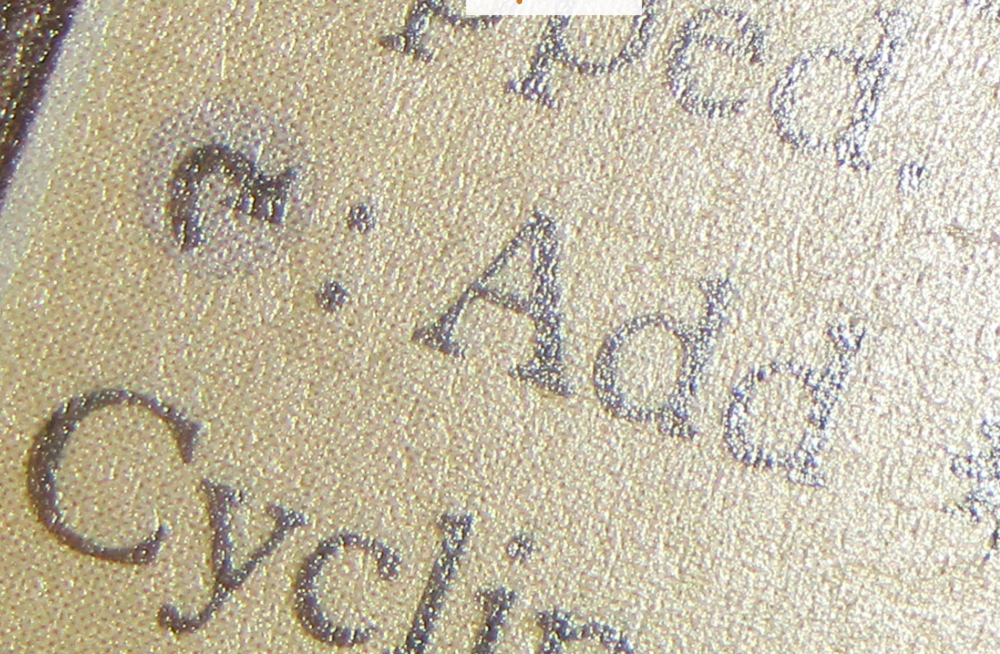 pped.
: Add
Cyclin